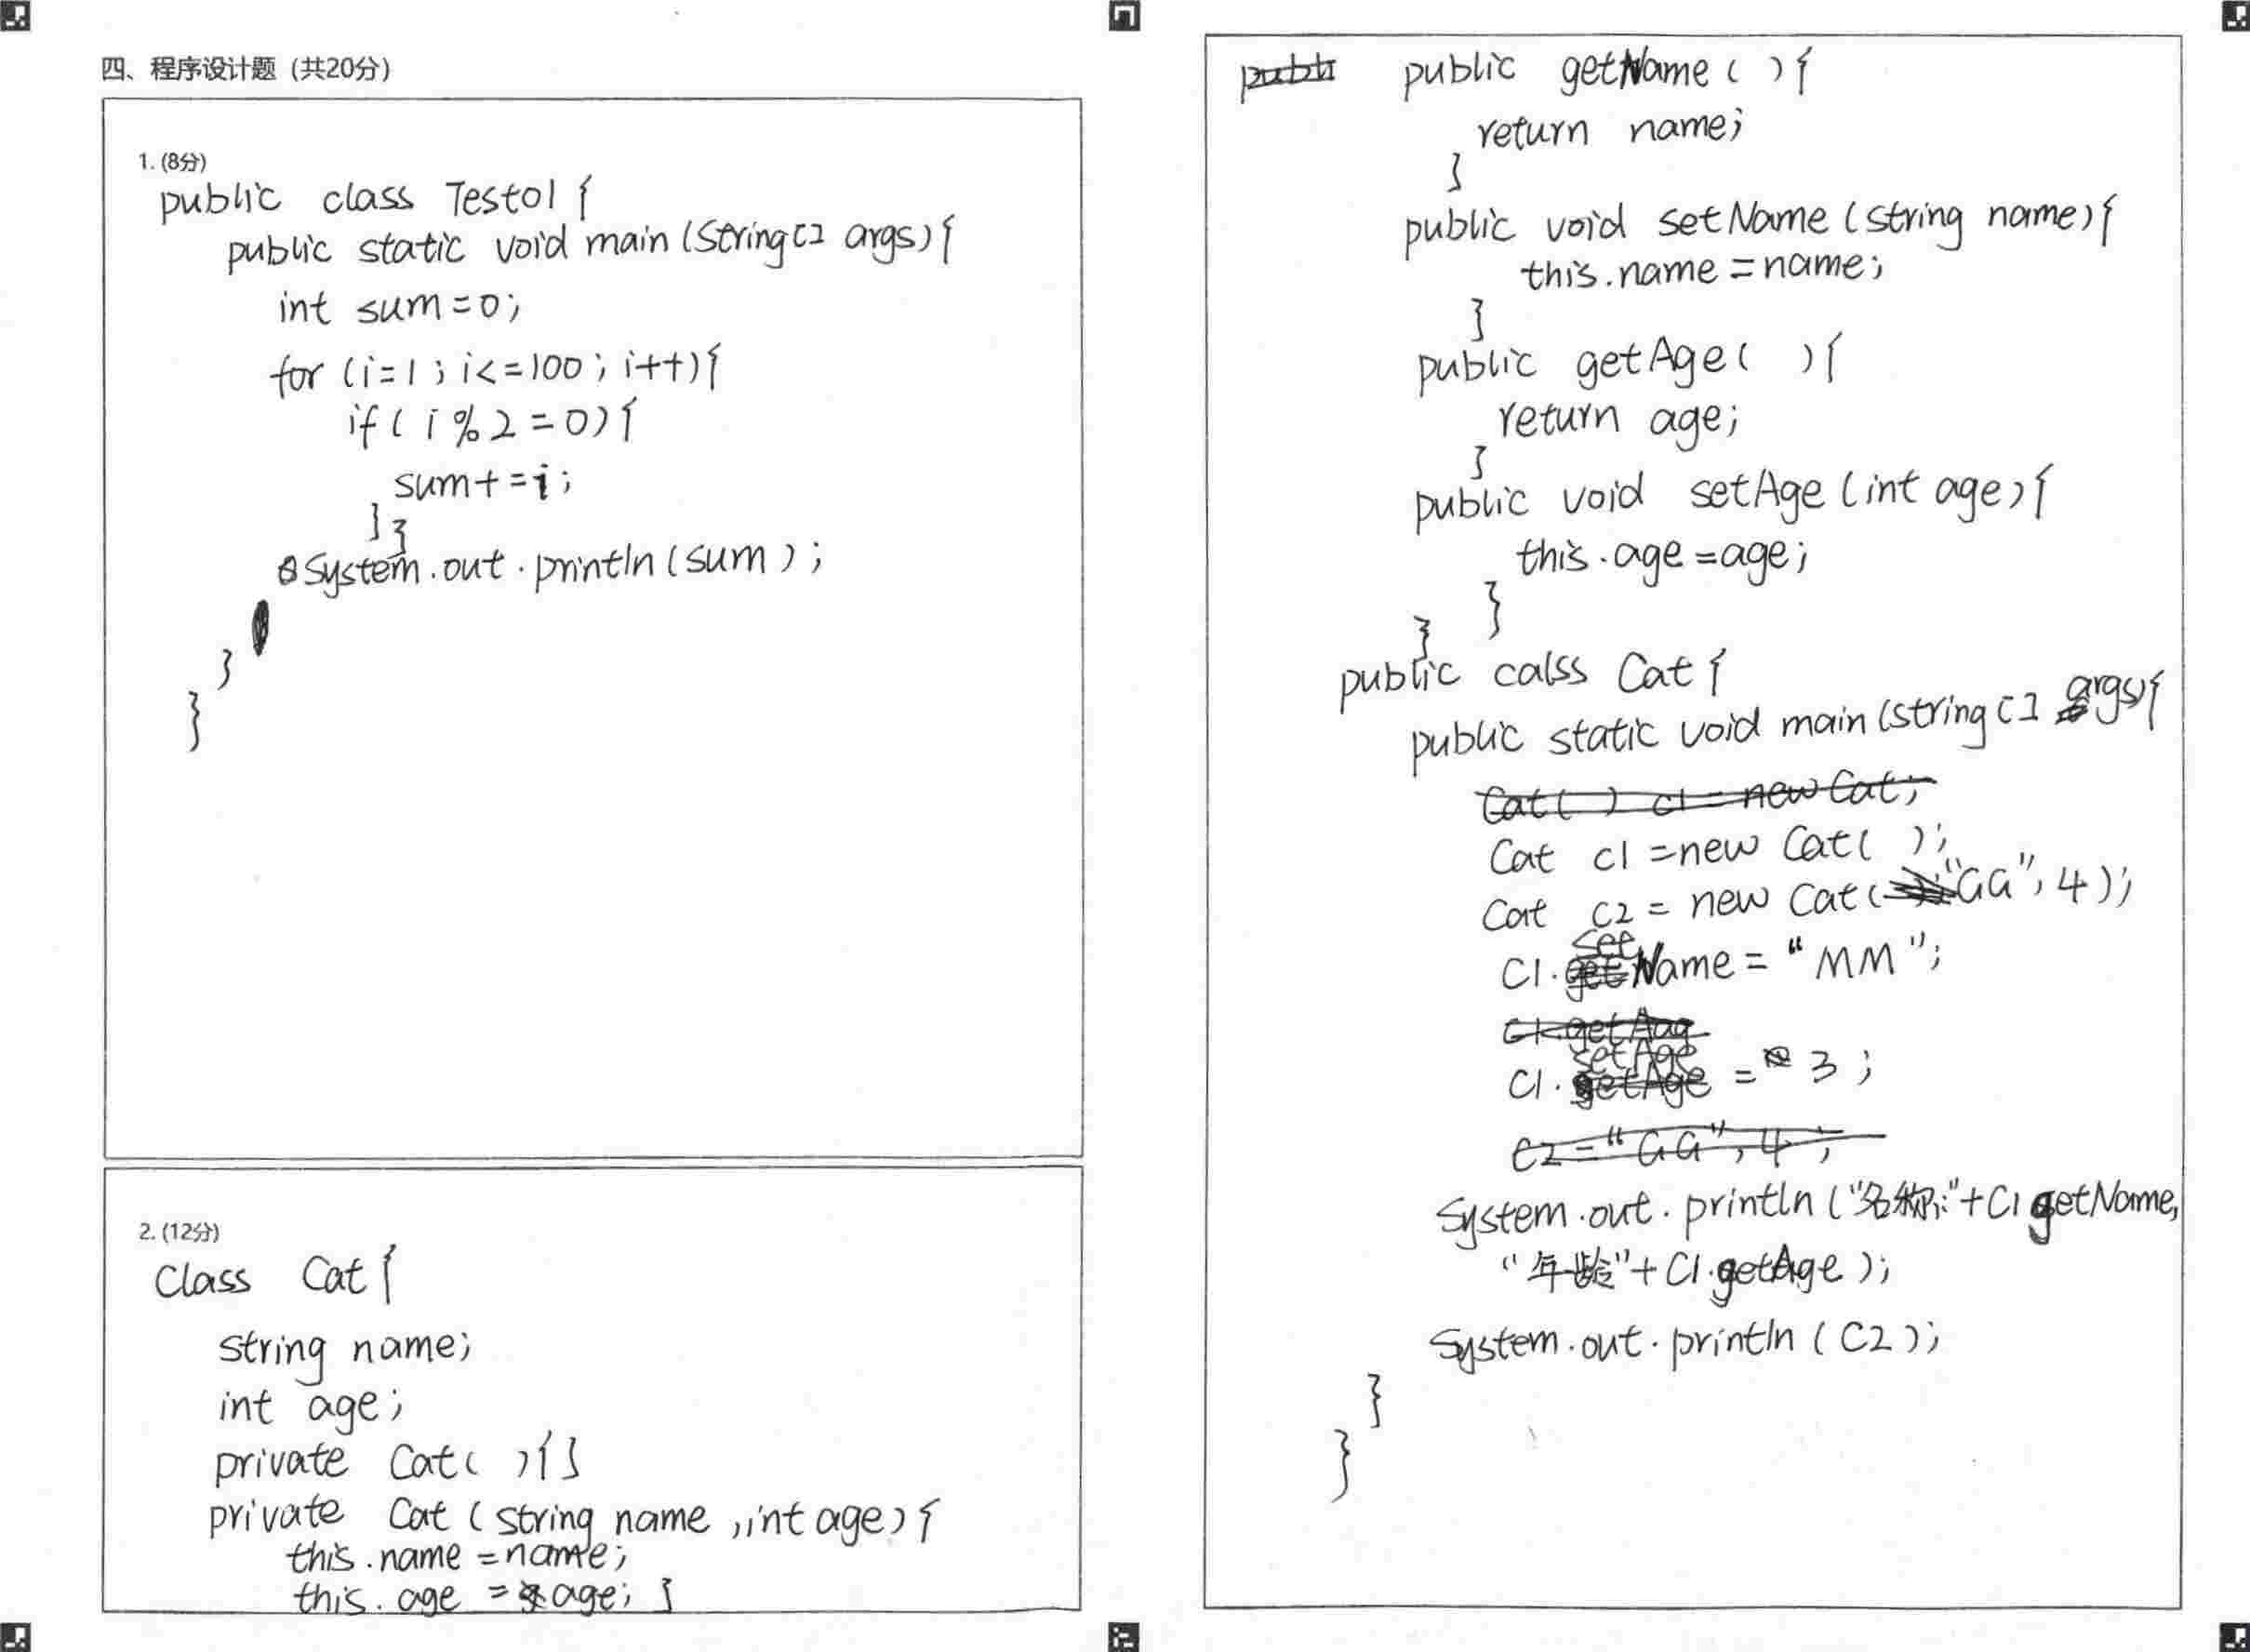 四、程序设计题（共20分）
1. (8分)
public class Test01 {
public static void main (String[] args) {
int sum=0;
for (i=1; i<=100; i++){
if( i%2=0){
sum+=i;
}}
System.out.println(sum);
}
}
2. (12分)
Class Cat {
string name;
int age;
private Cat( ){}
private Cat (string name, int age) {
this.name=name;
this.age=age; }
public getName ( ) {
return name;
}
public void setName (string name){
this.name=name;
}
public getAge( ){
return age;
}
public void setAge (int age){
this.age=age;
}
}
public calss Cat {
public static void main (string[] args){
Cat( ) c1 = new Cat;
Cat c1 =new Cat( );
Cat c2 = new Cat("GG", 4);
C1.setName = "MM";
C1.setAge = 3;
C2="GG", 4;
System.out.println("名称:"+C1 getName,
"年龄"+C1.getAge);
System.out.println (C2);
}
}